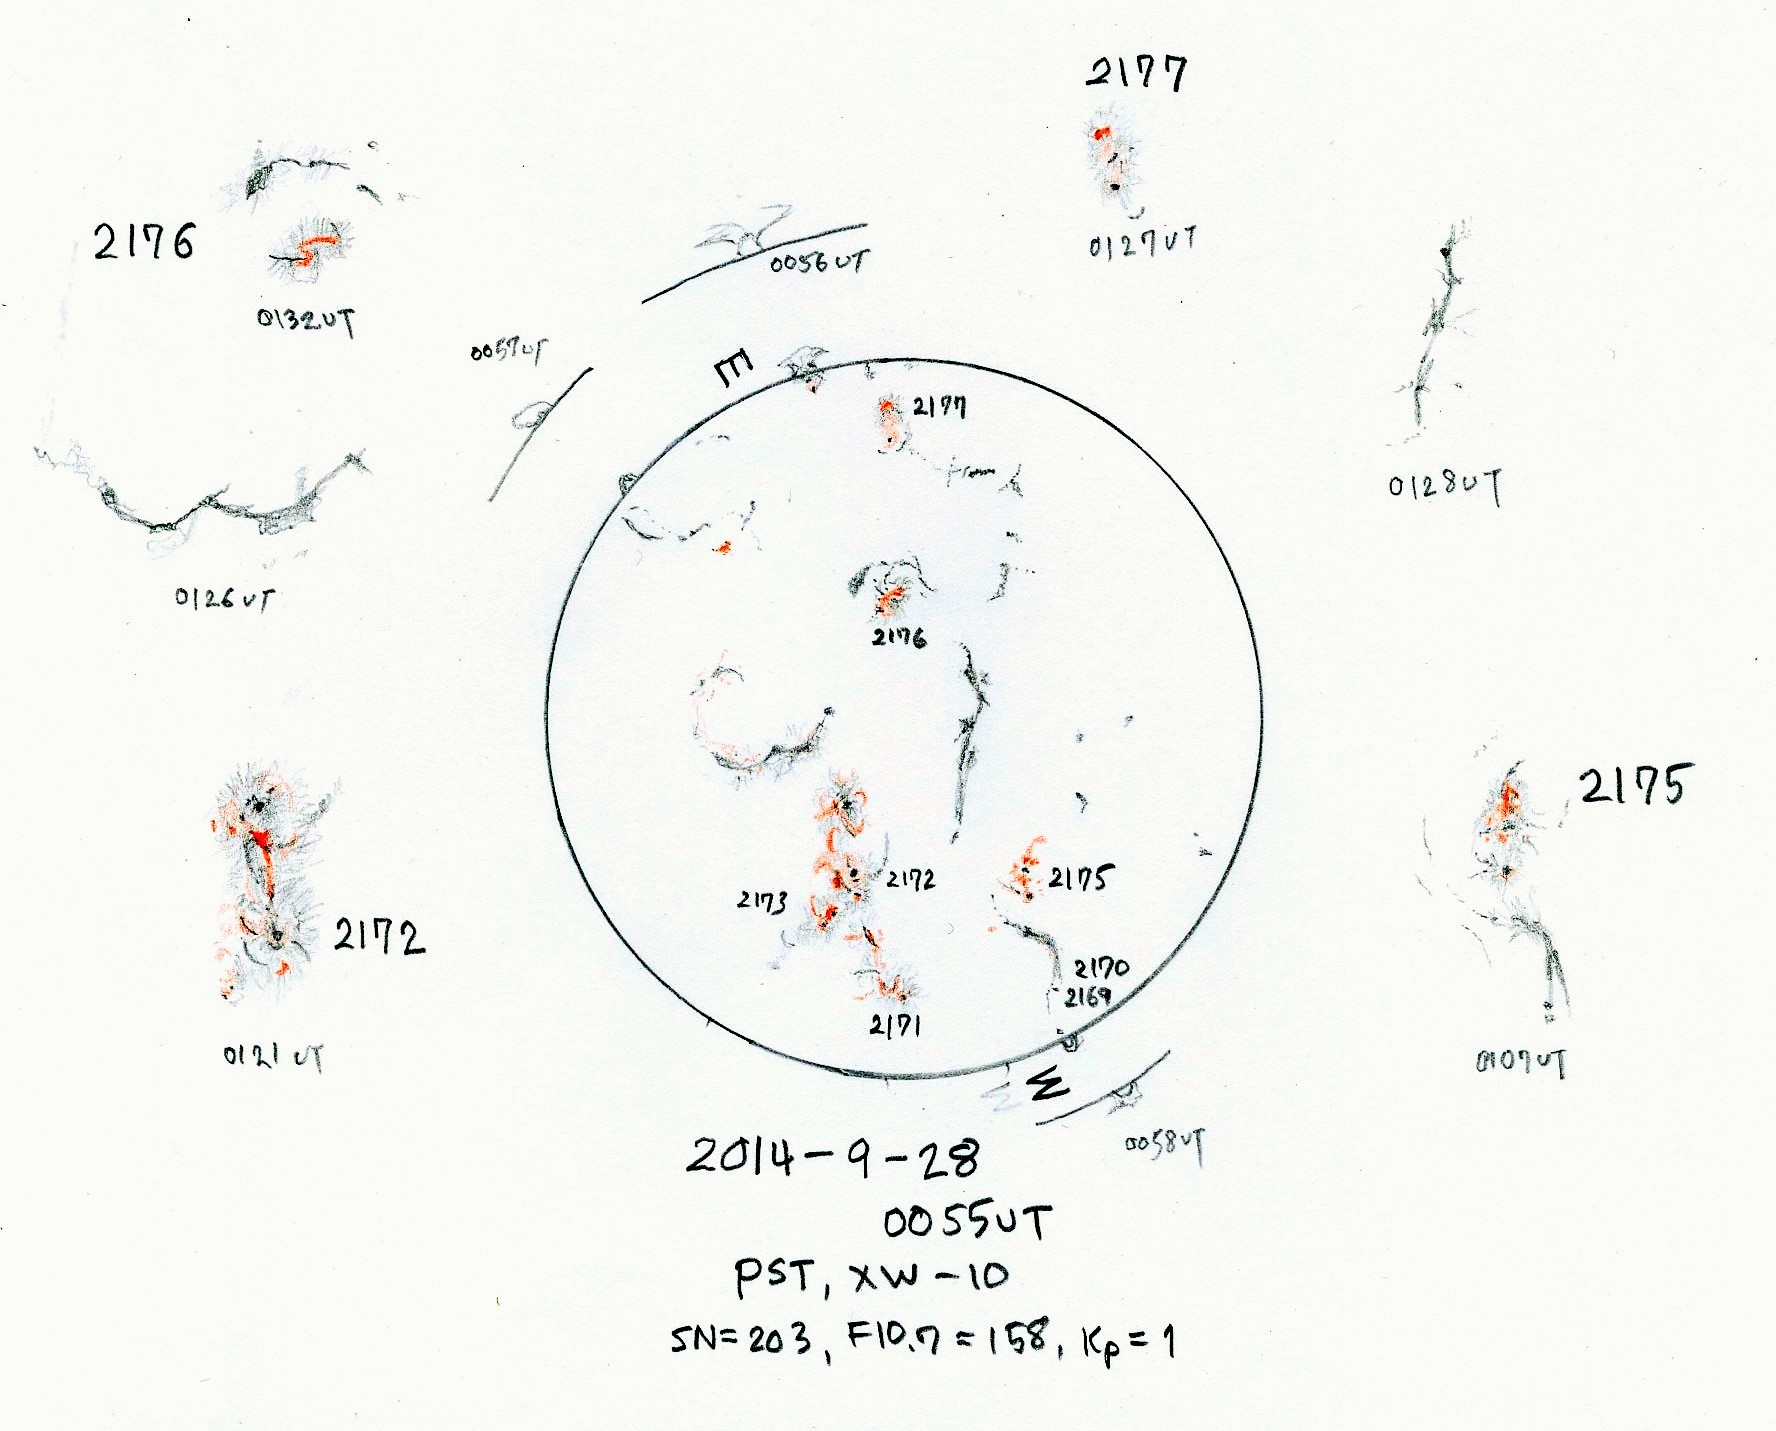 2177
0127UT
2176
0132UT
0056UT
0057UT
E
2177
0128UT
0126UT
2176
2175
2172
2173
2172
2175
0121UT
2170
2169
2171
0107UT
W
W
0058UT
2014-9-28
0055UT
PST, XW-10
SN=203, F10.7=158, Kp=1